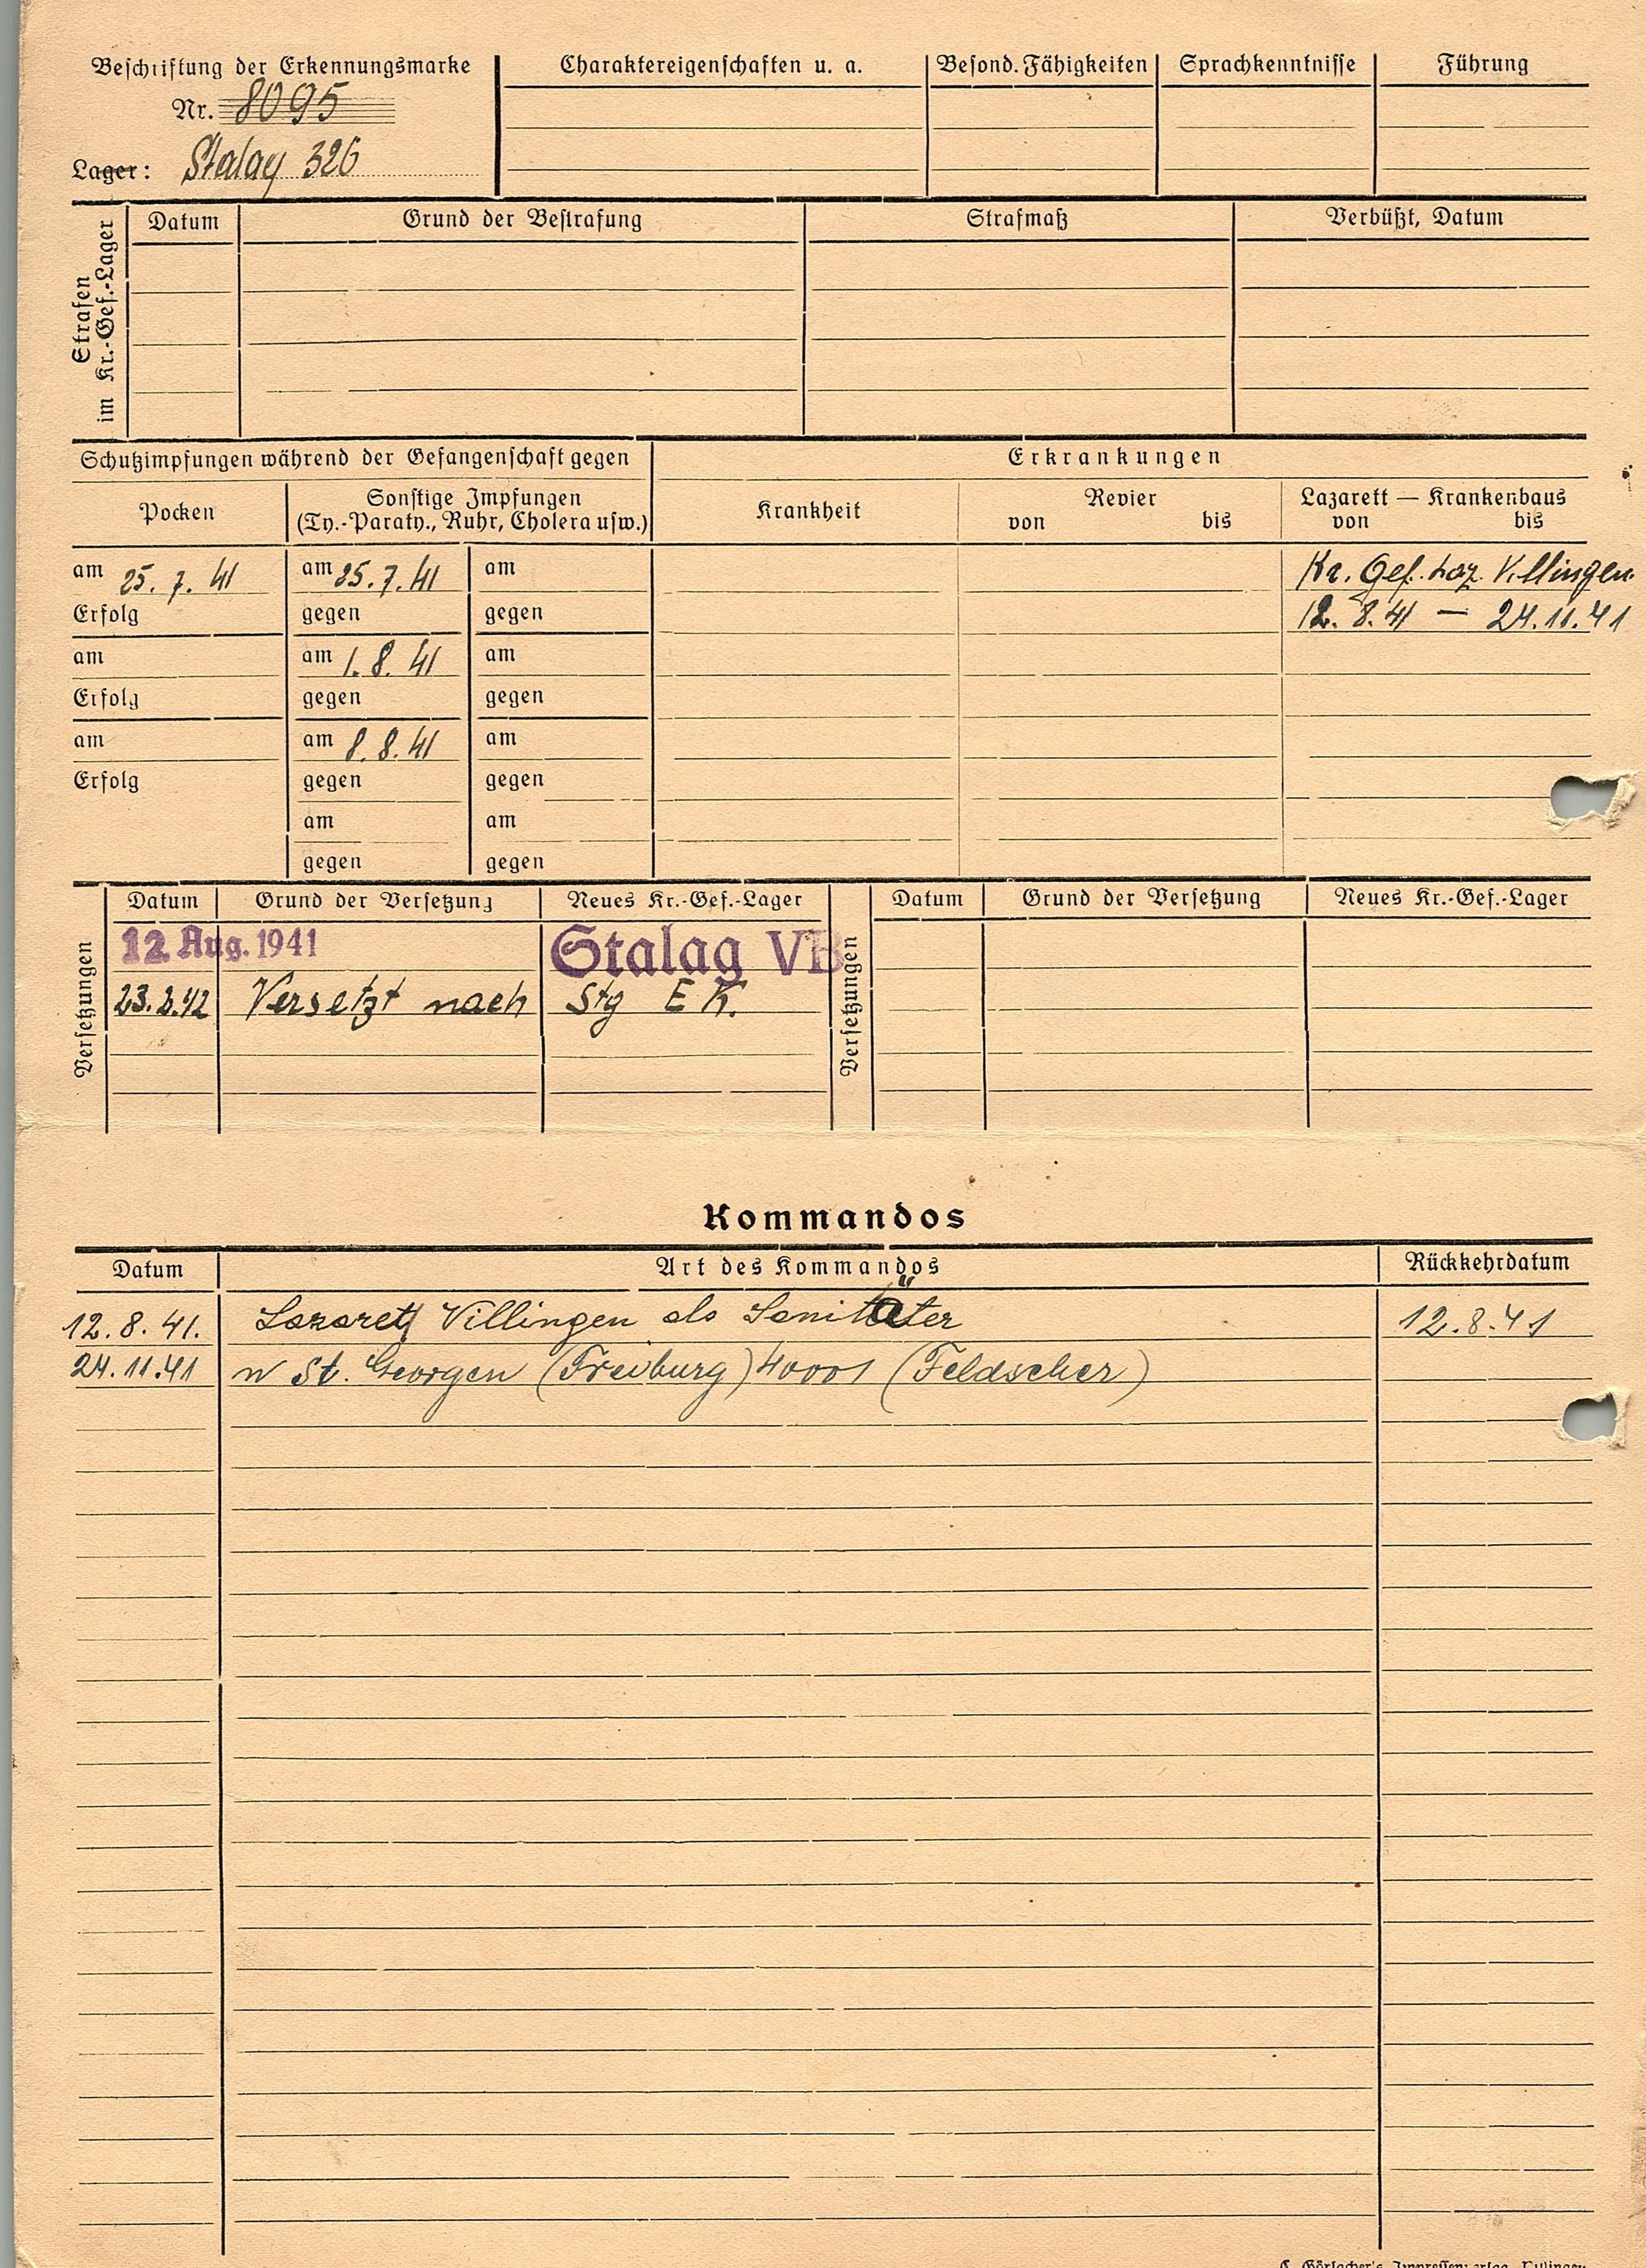 Beschriftung der Erkennungsmarke
Nr. 8095
Lager: Stalag 326
Charaktereigenschaften u. a.
Besond. Fähigkeiten
Sprachkenntnisse
Führung
Strafen
im Kr.-Gef.-Lager
Datum
Grund der Bestrafung
Strafmaß
Verbüßt, Datum
Schutzimpfungen während der Gefangenschaft gegen
Erkrankungen
Pocken
Sonstige Impfungen
(Ty.-Paraty., Ruhr, Cholera usw.)
Krankheit
Revier
von bis
Lazarett — Krankenhaus
von bis
am 25. 7. 41 am 25. 7. 41 am Kr. Gef. Laz. Villingen
Erfolg gegen gegen 12. 8. 41 — 24.11.41
am am 1. 8. 41 am
Erfolg gegen gegen
am am 8. 8. 41 am
Erfolg gegen gegen
am am
gegen gegen
Versetzungen
Datum Grund der Versetzung Neues Kr.-Gef.-Lager
12. Aug. 1941 Stalag VB
23.2.42 Versetzt nach Stg E K.
Versetzungen
Datum Grund der Versetzung Neues Kr.-Gef.-Lager
Kommandos
Datum Art des Kommandos Rückkehrdatum
12. 8. 41. Lazarett Villingen als Sanitäter 12.8.41
24.11.41 n St. Georgen (Freiburg) 40001 (Feldscher)